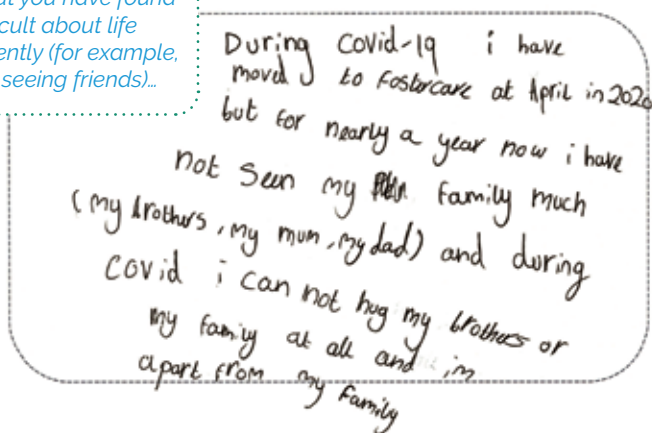 at you have found
cult about life
ently (for example,
seeing friends)...
During Covid-19 i have
moved to Fostercare at April in 2020
but for nearly a year now i have
not seen my family much
(my brothers, my mum, my dad) and during
covid i can not hug my brothers or
my family at all and im
apart from my family